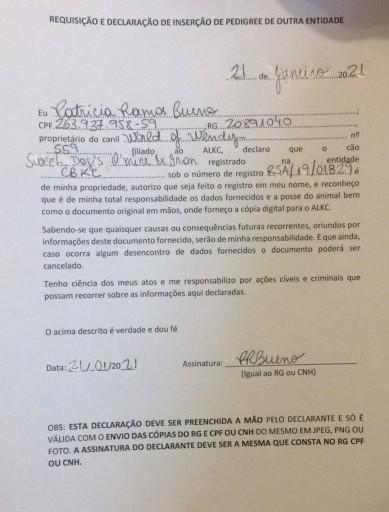 REQUISIÇÃO E DECLARAÇÃO DE INSERÇÃO DE PEDIGREE DE OUTRA ENTIDADE
21 de Janeiro 2021
Eu Patrícia Ramos Bueno ;
CPF 263.937.958-59 ,RG 20891040
proprietário do canil World of Wendy nº
559 filiado ao ALKC, declaro que o cão
Sweet Dog's registrado na entidade
CBKC sob o número de registro RSA/19/01829 é
de minha propriedade, autorizo que seja feito o registro em meu nome, e reconheço
que é de minha total responsabilidade os dados fornecidos e a posse do animal bem
como o documento original em mãos, onde forneço a cópia digital para o ALKC.
Sabendo-se que quaisquer causas ou consequências futuras recorrentes, oriundos por
informações deste documento fornecido, serão de minha responsabilidade. E que ainda,
caso ocorra algum desencontro de dados fornecidos o documento poderá ser
cancelado.
Tenho ciência dos meus atos e me responsabilizo por ações cíveis e criminais que
possam recorrer sobre as informações aqui declaradas.
O acima descrito é verdade e dou fé
Data: 21/01/2021 Assinatura: PRBueno
(Igual ao RG ou CNH)
OBS: ESTA DECLARAÇÃO DEVE SER PREENCHIDA A MÃO PELO DECLARANTE E SÓ É
VÁLIDA COM O ENVIO DAS CÓPIAS DO RG E CPF OU CNH DO MESMO EM JPEG, PNG OU
FOTO. A ASSINATURA DO DECLARANTE DEVE SER A MESMA QUE CONSTA NO RG CPF
OU CNH.